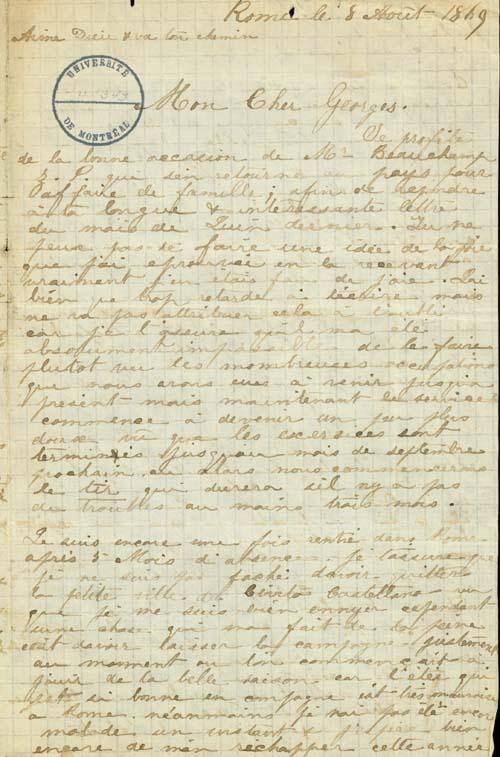 Rome le 8 Août 1869
Aime Dieu & va ton chemin
UNIVERSITÉ
DE MONTRÉAL
Mon Cher Georges.
Je profite
de la bonne occasion de Mr Beauchamp
Z. P. que s'en retourne au pays pour
affaire de famille; afin de repondre
a ta longue & intéressante lettre
du mois de Juin dernier. Tu ne
peux pas te faire une idée de la joie
que j'ai eprouvai en la recevant
vraiment j'en étais fou de joie. J'ai
bien je trop retardé a t'ecrire mais
ne va pas attribuer cela à l'oubli
car je t'assure qu'il m'a été
absolument impossible de le faire
plutot vu les nombreuses occupations
que nous avons eues à venir jusqu'a
present mais maintenant le service
commence à devenir un peu plus
douse vu que les excersices sont
terminés jusqu'au mois de septembre
prochain ou alors nous commencerons
le tir qui durera s'il n'y a pas
du troubles au moins trois mois.
Je suis encore une fois rentré dans Rome
après 5 Mois d'absence. je t'assure que
je ne suis pas faché d'avoir quitter
la petite ville de Civita Castellana vu
que je me suis bien ennuyer cependant
une chose qui m'a fait de la peine
c'est d'avoir laisser la campagne justement
au moment ou l'on commençait à
jouir de la belle saison car l'été qui
est si bonne en campagne est tres mauvais
a Rome. néanmoins je n'ai pas été encore
malade un instant & j'espère bien
encore de m'en réchapper cette année